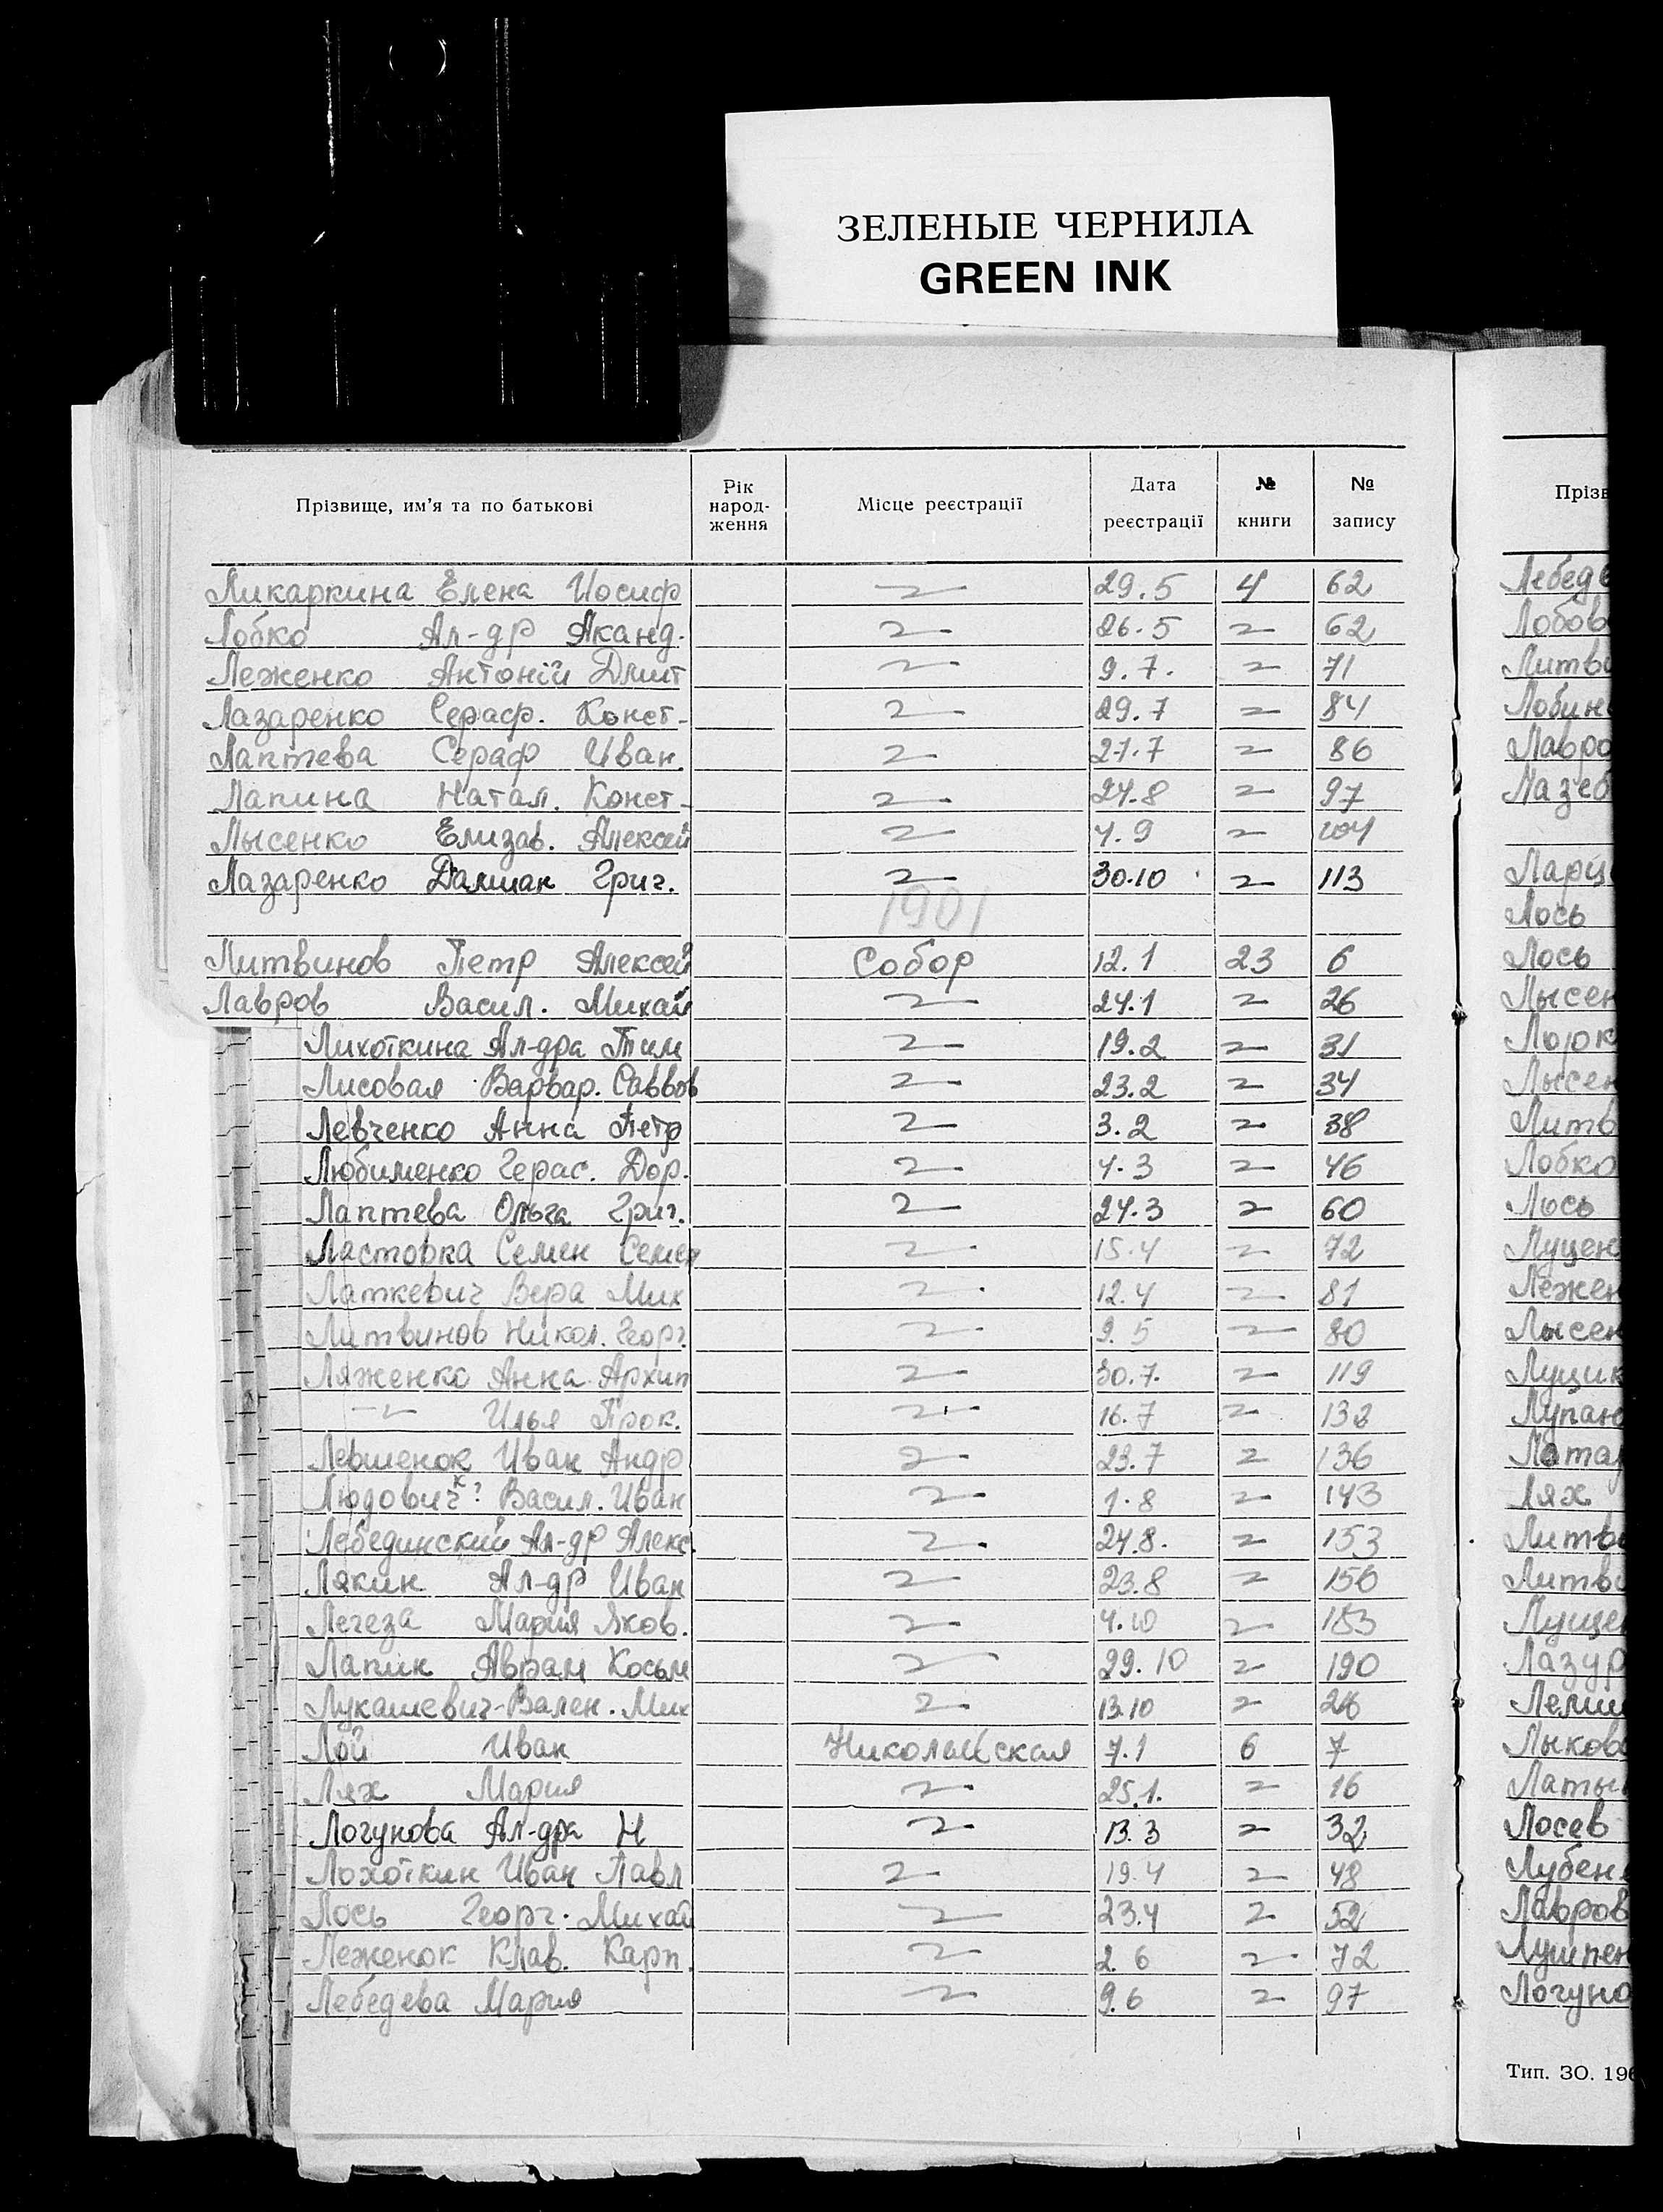 ЗЕЛЕНЫЕ ЧЕРНИЛА
GREEN INK
Прізвище, им'я та по батькові Рік народ-ження Місце реєстрації Дата реєстрації № книги № запису
Ликаркина Елена Иосиф 29.5 4 62
Лобко Ал-др Аканд. 26.5 62
Леженко Антоній Дмит 9.7. 71
Лазаренко Сераф. Конст- 29.7 84
Лаптева Сераф Иван. 27.7 86
Лапина Натал. Конст- 24.8 97
Лысенко Елизав. Алексей 4.9 104
Лазаренко Дамиан Григ. 30.10 113
1901
Литвинов Петр Алексей Собор 12.1 23 6
Лавров Васил. Михай 24.1 26
Лихоткина Ал-дра Тим 19.2 31
Лисовая Варвар. Саввов 23.2 34
Левченко Анна Петр 3.2 38
Любименко Герас. Дор. 4.3 46
Лаптева Ольга Григ. 24.3 60
Ластовка Семен Семен 15.4 72
Латкевич Вера Мих 12.4 81
Литвинов Никол. Георг. 9.5 80
Ляженко Анна Архип 30.7. 119
Илья Прок. 16.7 132
Левшенок Иван Андр 23.7 136
Людович к? Васил. Иван 1.8 143
Лебединский Ал-др Алекс. 24.8. 153
Лякин Ал-др Иван 23.8 156
Легеза Мария Яков. 4.10 183
Лапин Аврам Косьм 29.10 190
Лукашевич-Вален. Мих 13.10
Лой Иван Николаевская 7.1 6 7
Лях Мария 25.1. 16
Логунова Ал-дра Н 13.3 32
Лохоткин Иван Павл 19.4 48
Лось Георг. Михай 23.4 52
Леженок Клав. Карп. 2.6 72
Лебедева Мария 9.6 97
Прізв
Лебеде
Лобов
Литви
Лобин
Лавро
Лазеб
Ларц
Лось
Лось
Лысен
Лысен
Литв
Лобко
Лось
Луцен
Лежен
Лысен
Луцик
Лупан
Латар
Лях
Литви
Литви
Луце
Лазур
Лыков
Латы
Лосев
Лубен
Лавров
Логуно
Тип. ЗО. 196